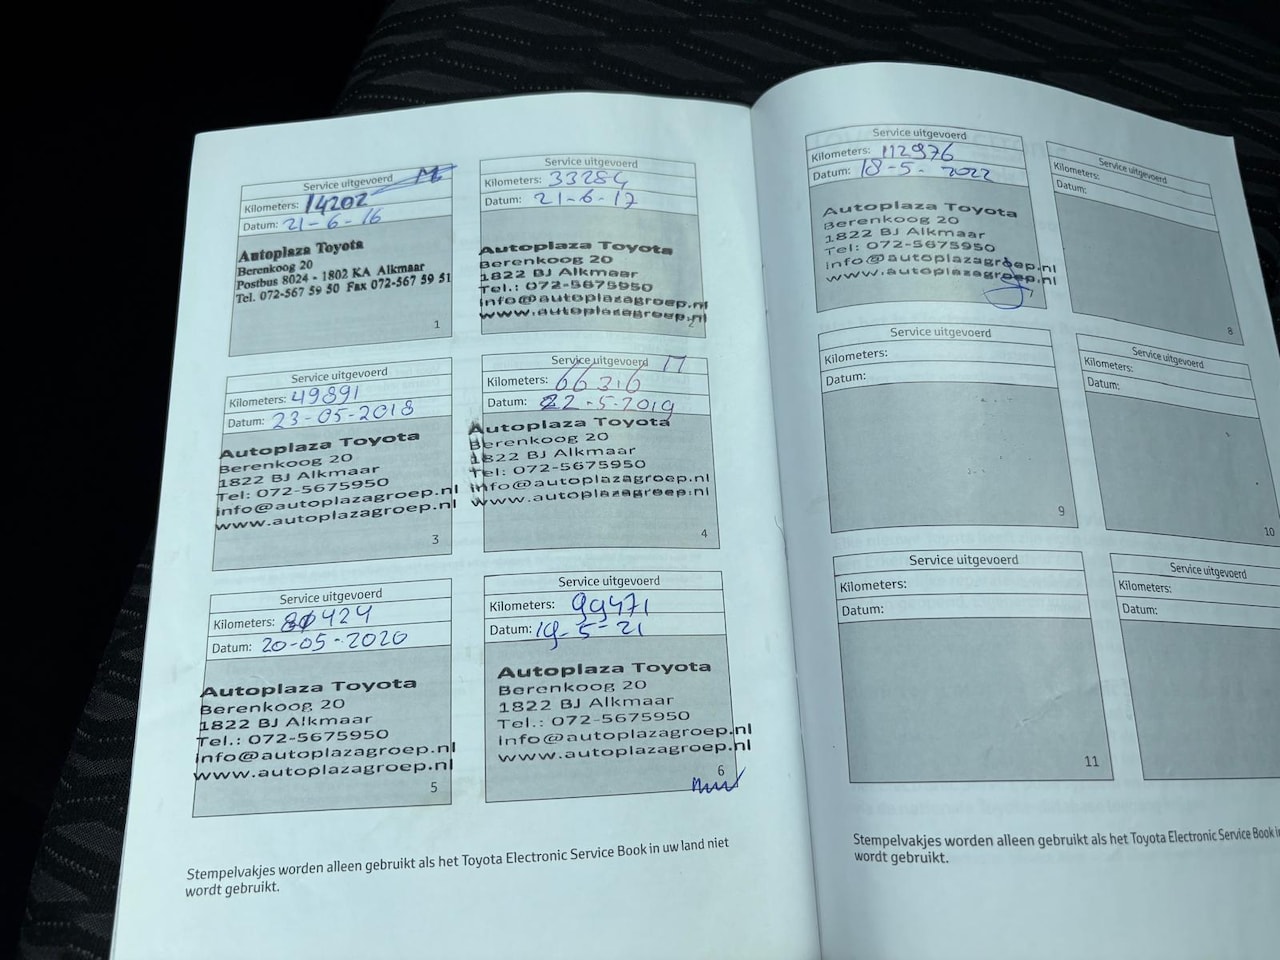 Service uitgevoerd
Kilometers: 14202
Datum: 21-6-16
Autoplaza Toyota
Berenkoog 20
Postbus 8024 - 1802 KA Alkmaar
Tel. 072-567 59 50 Fax 072-567 59 51
1
Service uitgevoerd
Kilometers: 33284
Datum: 21-6-17
Autoplaza Toyota
Berenkoog 20
1822 BJ Alkmaar
Tel.: 072-5675950
info@autoplazagroep.nl
www.autoplazagroep.nl
2
Service uitgevoerd
Kilometers: 49891
Datum: 23-05-2018
Autoplaza Toyota
Berenkoog 20
1822 BJ Alkmaar
Tel: 072-5675950
info@autoplazagroep.nl
www.autoplazagroep.nl
3
Service uitgevoerd
Kilometers: 66316
Datum: 22-5-2019
Autoplaza Toyota
Berenkoog 20
1822 BJ Alkmaar
Tel: 072-5675950
info@autoplazagroep.nl
www.autoplazagroep.nl
4
Service uitgevoerd
Kilometers: 80424
Datum: 20-05-2020
Autoplaza Toyota
Berenkoog 20
1822 BJ Alkmaar
Tel.: 072-5675950
info@autoplazagroep.nl
www.autoplazagroep.nl
5
Service uitgevoerd
Kilometers: 99471
Datum: 19-5-21
Autoplaza Toyota
Berenkoog 20
1822 BJ Alkmaar
Tel.: 072-5675950
info@autoplazagroep.nl
www.autoplazagroep.nl
6
Stempelvakjes worden alleen gebruikt als het Toyota Electronic Service Book in uw land niet
wordt gebruikt.
Service uitgevoerd
Kilometers: 112976
Datum: 18-5-2022
Autoplaza Toyota
Berenkoog 20
1822 BJ Alkmaar
Tel: 072-5675950
info@autoplazagroep.nl
www.autoplazagroep.nl
Service uitgevoerd
Kilometers:
Datum:
8
Service uitgevoerd
Kilometers:
Datum:
9
Service uitgevoerd
Kilometers:
Datum:
10
Service uitgevoerd
Kilometers:
Datum:
11
Service uitgevoerd
Kilometers:
Datum:
Stempelvakjes worden alleen gebruikt als het Toyota Electronic Service Book in
wordt gebruikt.